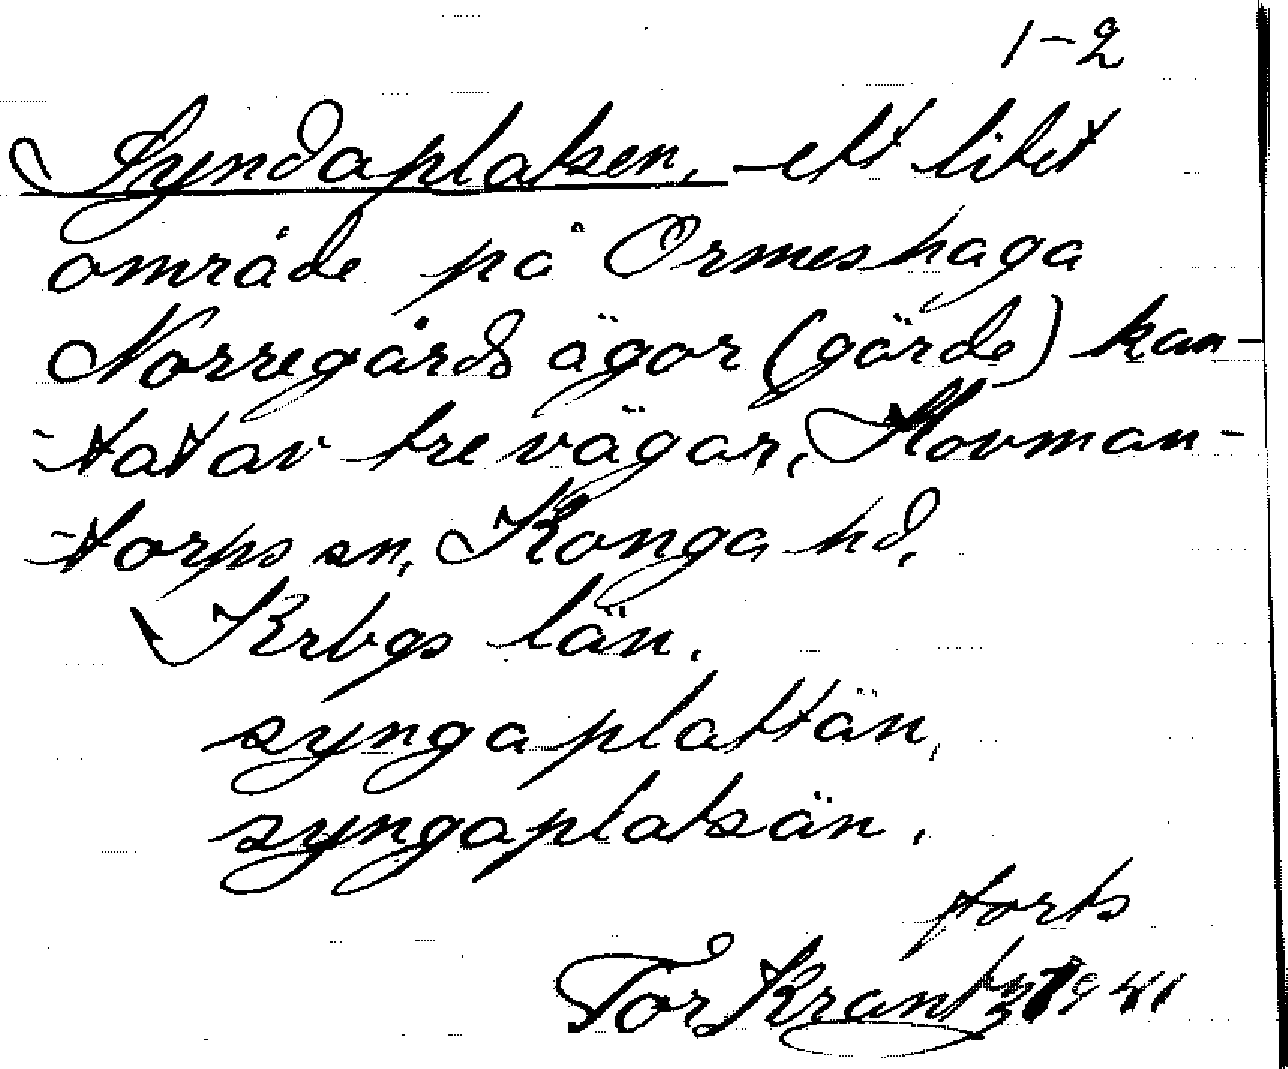 1-2
Syndaplatsen, ett litet
område på Ormeshaga
Norregårds ägor (gärde) kan-
tat av tre vägar, Hovman-
torps sn, Konga hd,
Krbgs län.
syngaplattän,
syngaplatsän.
forts
Tor Krantz 1941